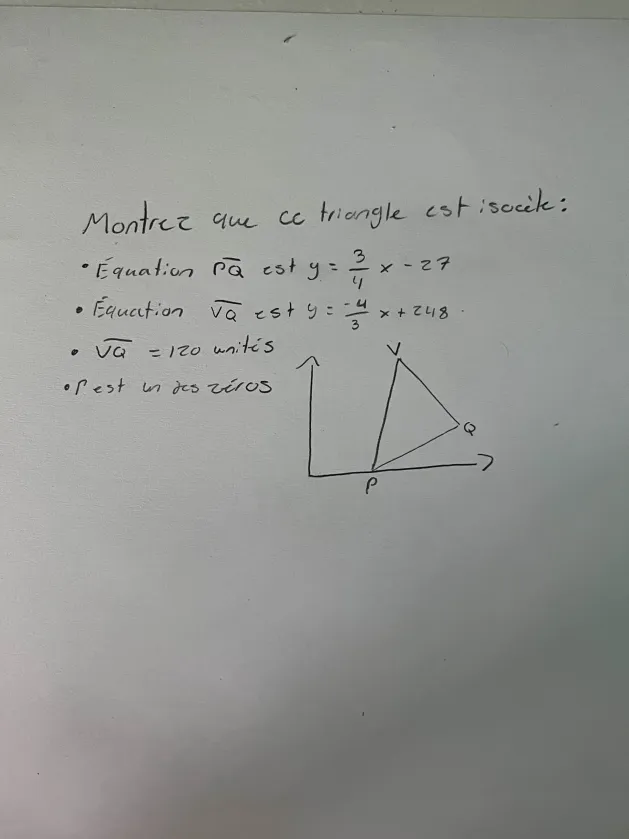 Montrez que ce triangle est isocèle :
• Équation PQ̅ est y = 3/4 x - 27
• Équation V̅Q̅ est y = -4/3 x + 248.
• V̅Q̅ = 120 unités
• P est un des zéros
V
Q
P